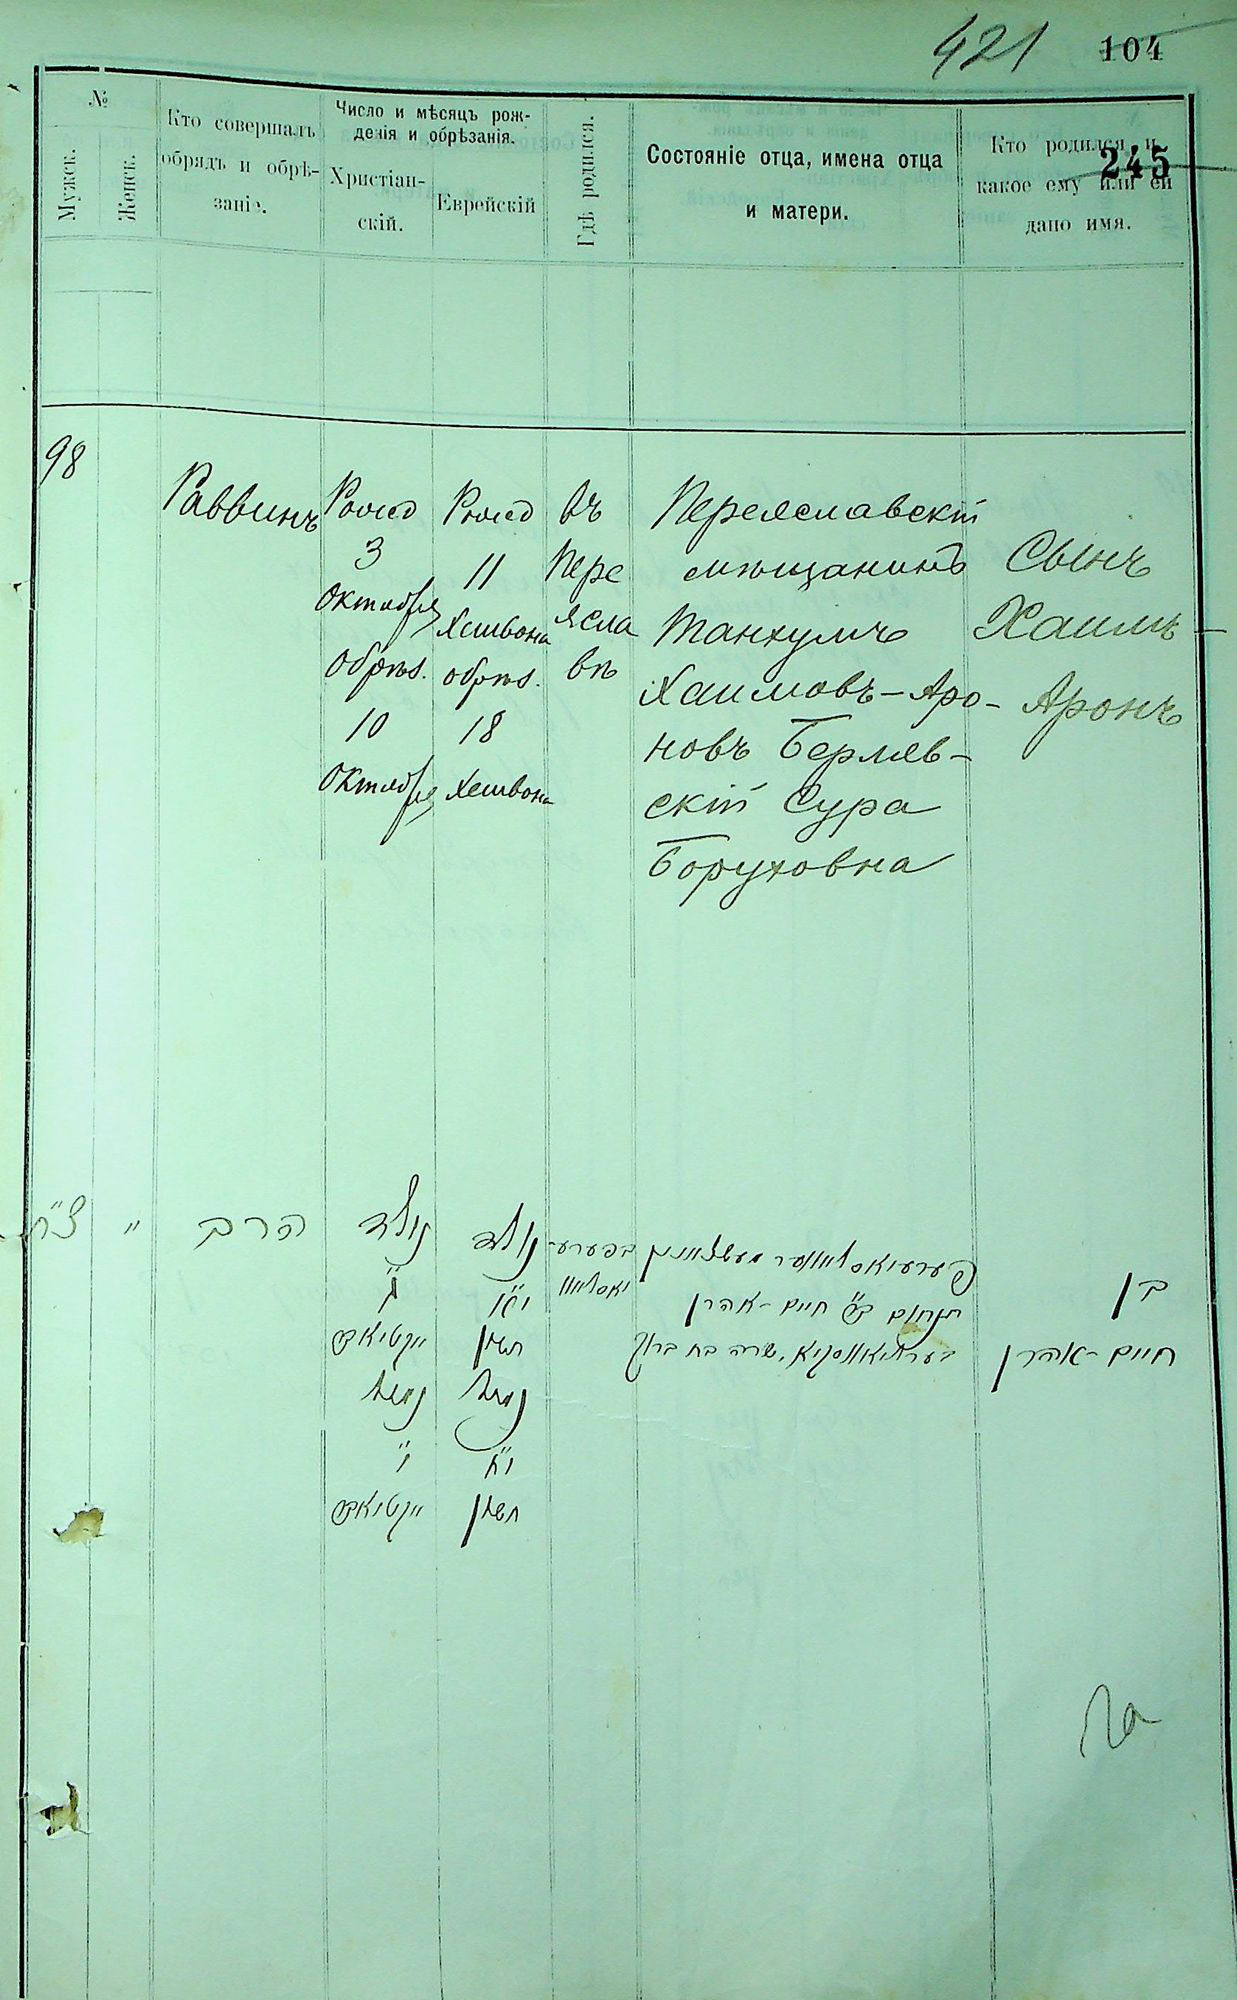 421 104
245
№
Мужск.
Женск.
Кто совершалъ
обрядъ и обрѣ-
заніе.
Число и мѣсяцъ рож-
денія и обрѣзанія.
Христіан-
скій.
Еврейскій
Гдѣ родился.
Состояніе отца, имена отца
и матери.
Кто родился и
какое ему или ей
дано имя.
98
Раввинъ
Рожд
3
Октября
обрѣз.
10
Октября
Рожд
11
Хешвона
обрѣз.
18
Хешвона
въ
Пере
ясла
вѣ
Переяславскій
мѣщанинъ
Танхумъ
Хаимовъ-Аро-
новъ Берляв-
скій Сура
Боруховна
Сынъ
Хаимъ-
Аронъ
צ״ח
״
הרב
נולד
ג״
אקטיאבר
נימול
י״
אקטיאבר
נולד
י״א
חשון
נימול
י״ח
חשון
בפערע-
יאסלאוו
פערעיאסלאווער מעשצאנין
תנחום ב״ר חיים-אהרן
שרה בת ברוך
בן
חיים-אהרן